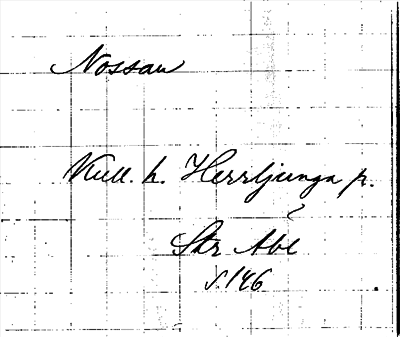 Nossan
Kull. h. Herrljunga p.
Skr Abl
s. 146